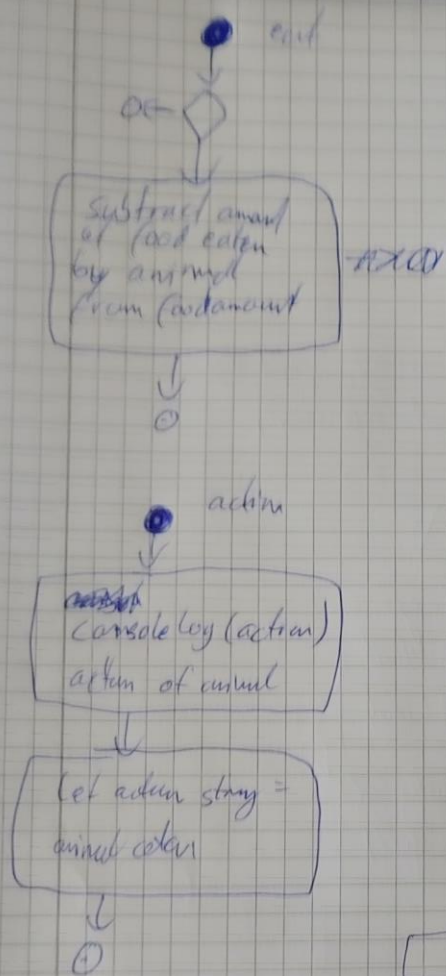 eat
Subtract amount
of food eaten
by animal
from foodamount
action
console log (action)
action of animal
let action string =
animal